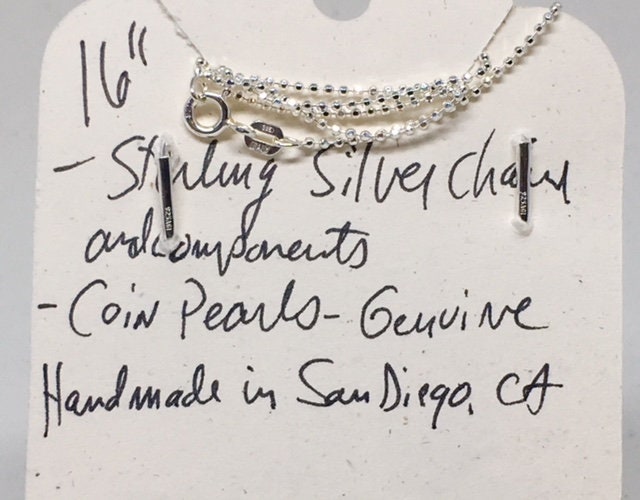 16"
- Sterling Silver Chain
and components
- Coin Pearls - Genuine
Handmade in San Diego, CA